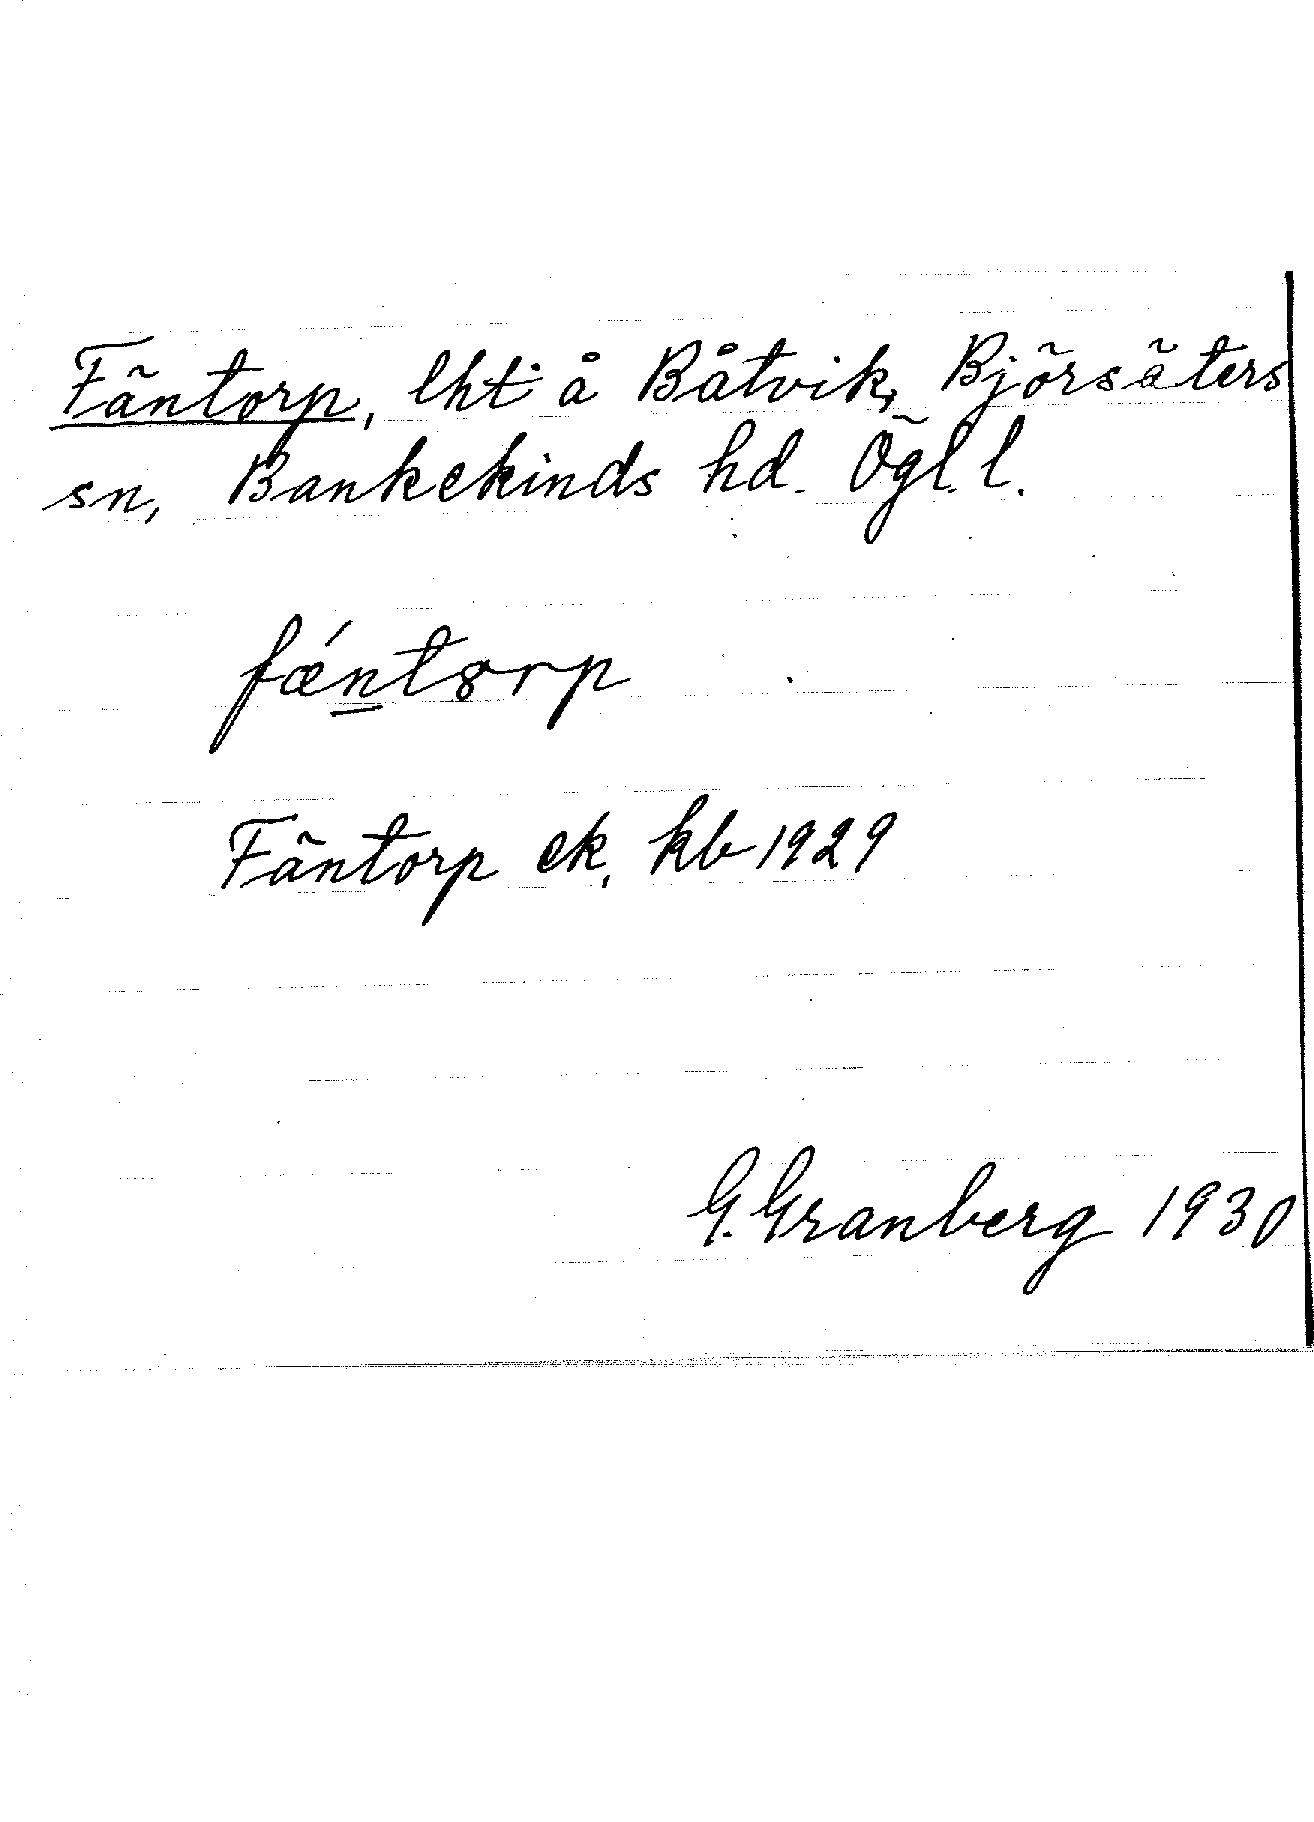 Fäntorp, lht å Båtvik, Björsäters
sn, Bankekinds hd. Ögl. l.
fǽntørp
Fäntorp ek, kb 1929
G. Granberg 1930